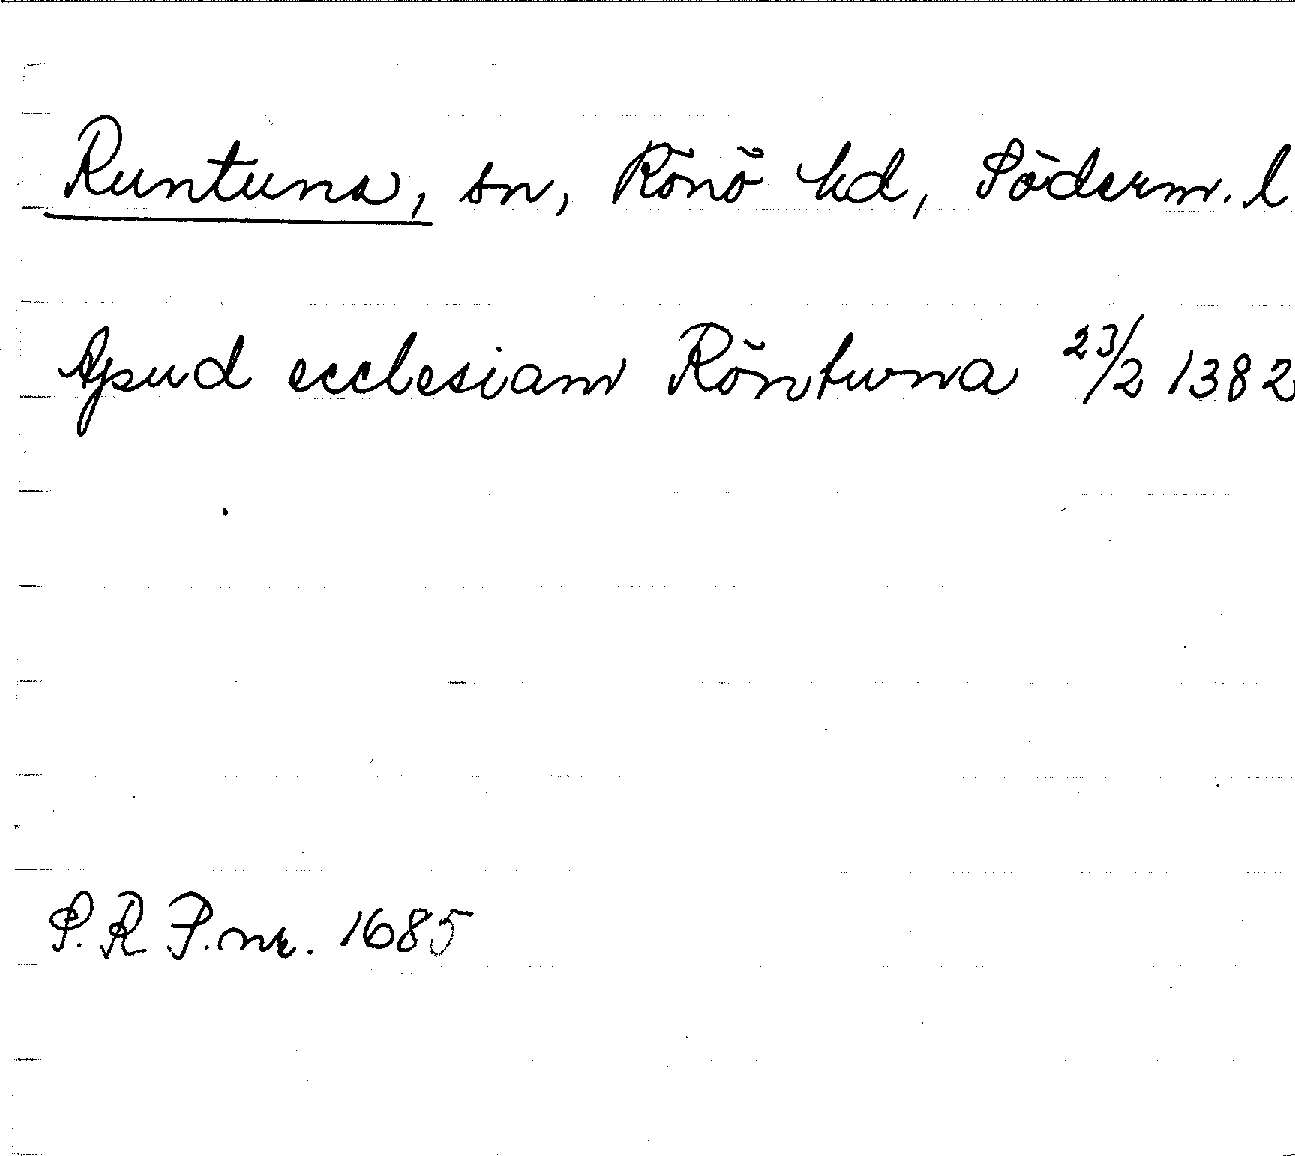 Runtuna, sn, Rönö hd, Söderm. l
Apud ecclesiam Röntuna 23/2 1382
S.R.P. nr. 1685